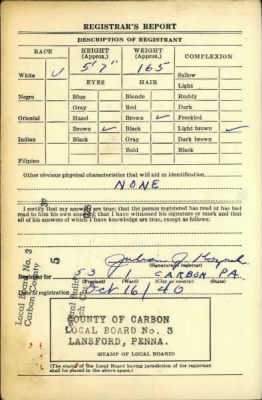 REGISTRAR'S REPORT
DESCRIPTION OF REGISTRANT
RACE HEIGHT (Approx.) WEIGHT (Approx.) COMPLEXION
5' 7" 165
White ✓ Sallow
EYES HAIR Light
Negro Blue Blonde Ruddy
Gray Red Dark
Oriental Hazel Brown ✓ Freckled
Brown ✓ Black Light brown ✓
Indian Black Gray Dark brown
Bald Black
Filipino
Other obvious physical characteristics that will aid in identification
NONE
I certify that my answers are true; that the person registered has read or has had
read to him his own answers; that I have witnessed his signature or mark and that
all of his answers of which I have knowledge are true, except as follows:
(Signature of registrar)
Registrar for 53 1 CARBON PA.
(Precinct) (Ward) (City or county) (State)
Date of registration Oct 16/40
Local Board No. 3
Carbon County
COUNTY OF CARBON
LOCAL BOARD No. 3
LANSFORD, PENNA.
(STAMP OF LOCAL BOARD)
(The stamp of the Local Board having jurisdiction of the registrant
shall be placed in the above space.)